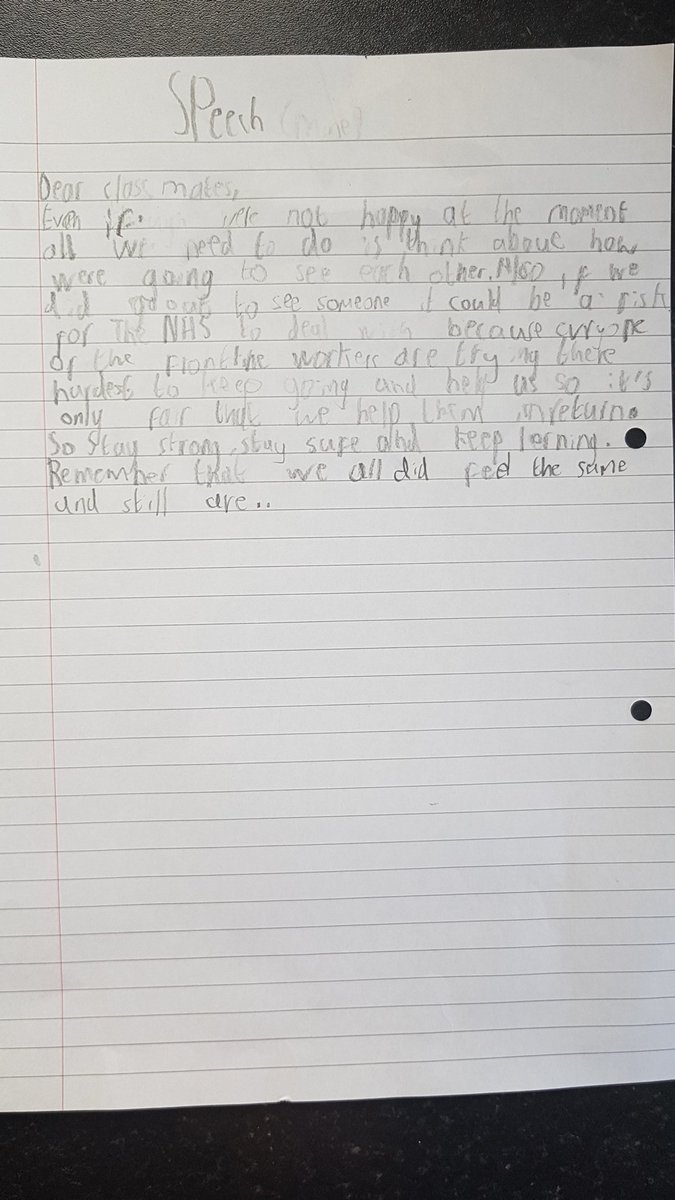 SPeech (mine)
Dear class mates,
Even if were not happy at the moment
all we need to do is think aboue how
were going to see each other. Also, if we
did go out to see someone it could be a risk
for The NHS to deal with because
of the frontline workers are trying there
hardest to keep going and help us so it's
only far that we help them in return.
So Stay strong, stay safe and keep lerning.
Remember that we all did feel the same
and still are..